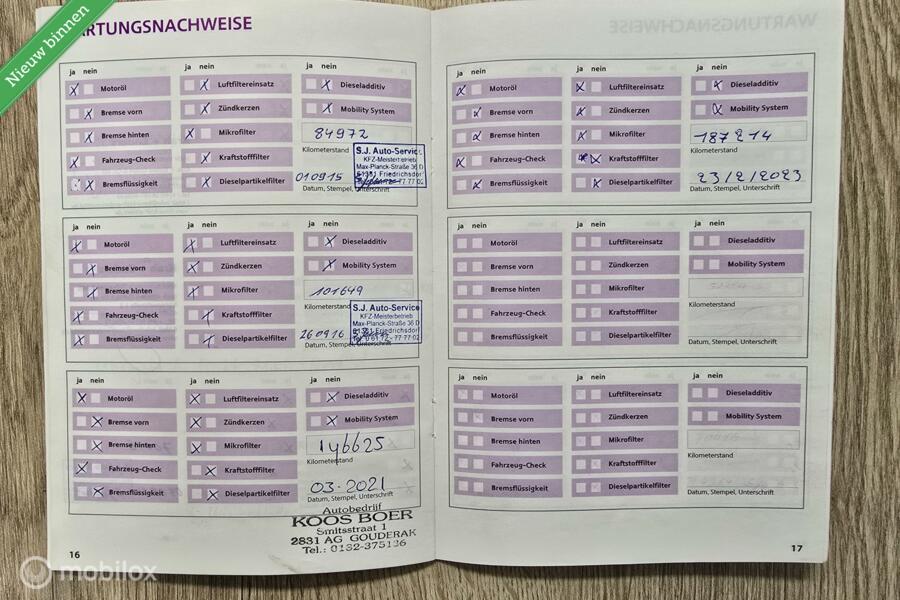 Nieuw binnen
WARTUNGSNACHWEISE
ja nein
Motoröl
Bremse vorn
Bremse hinten
Fahrzeug-Check
Bremsflüssigkeit
ja nein
Luftfiltereinsatz
Zündkerzen
Mikrofilter
Kraftstofffilter
Dieselpartikelfilter
ja nein
Dieseladditiv
Mobility System
84972
Kilometerstand
010915
Datum, Stempel, Unterschrift
S.J. Auto-Service
KFZ-Meisterbetrieb
Max-Planck-Straße 36 D
61381 Friedrichsdorf
77-77 02
ja nein
Motoröl
Bremse vorn
Bremse hinten
Fahrzeug-Check
Bremsflüssigkeit
ja nein
Luftfiltereinsatz
Zündkerzen
Mikrofilter
Kraftstofffilter
Dieselpartikelfilter
ja nein
Dieseladditiv
Mobility System
101649
Kilometerstand
260916
Datum, Stempel, Unterschrift
S.J. Auto-Service
KFZ-Meisterbetrieb
Max-Planck-Straße 36 D
61381 Friedrichsdorf
Tel. 0 61 72 - 77-77 02
ja nein
Motoröl
Bremse vorn
Bremse hinten
Fahrzeug-Check
Bremsflüssigkeit
ja nein
Luftfiltereinsatz
Zündkerzen
Mikrofilter
Kraftstofffilter
Dieselpartikelfilter
ja nein
Dieseladditiv
Mobility System
146625
Kilometerstand
03-2021
Datum, Stempel, Unterschrift
Autobedrijf
KOOS BOER
Smitsstraat 1
2831 AG GOUDERAK
Tel.: 0182-375136
16
ja nein
Motoröl
Bremse vorn
Bremse hinten
Fahrzeug-Check
Bremsflüssigkeit
ja nein
Luftfiltereinsatz
Zündkerzen
Mikrofilter
Kraftstofffilter
Dieselpartikelfilter
ja nein
Dieseladditiv
Mobility System
187214
Kilometerstand
23/2/2023
Datum, Stempel, Unterschrift
ja nein
Motoröl
Bremse vorn
Bremse hinten
Fahrzeug-Check
Bremsflüssigkeit
ja nein
Luftfiltereinsatz
Zündkerzen
Mikrofilter
Kraftstofffilter
Dieselpartikelfilter
ja nein
Dieseladditiv
Mobility System
Kilometerstand
Datum, Stempel, Unterschrift
ja nein
Motoröl
Bremse vorn
Bremse hinten
Fahrzeug-Check
Bremsflüssigkeit
ja nein
Luftfiltereinsatz
Zündkerzen
Mikrofilter
Kraftstofffilter
Dieselpartikelfilter
ja nein
Dieseladditiv
Mobility System
Kilometerstand
Datum, Stempel, Unterschrift
17
mobilox